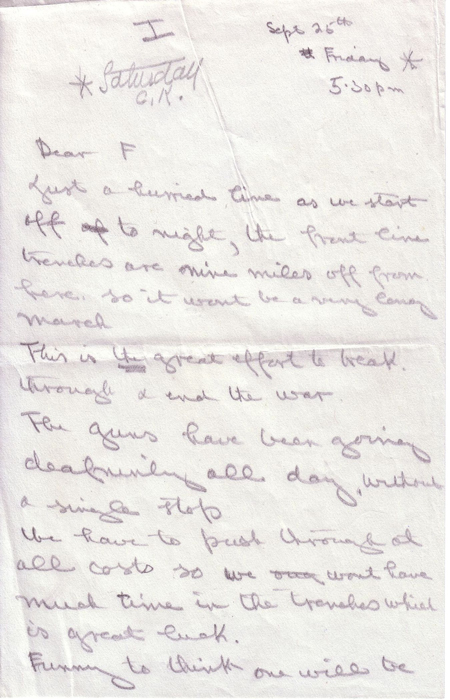 I
Sept 25th
Friday *
5.30pm
* Saturday
G.K.
Dear F
Just a hurried line as we start
off to night, the front line
trenches are nine miles off from
here. so it wont be a very long
march
This is the great effort to break.
through & end the war.
The guns have been going
deafeningly all day, without
a single stop
We have to push through at
all costs so we wont have
much time in the trenches which
is great luck.
Funny to think one will be